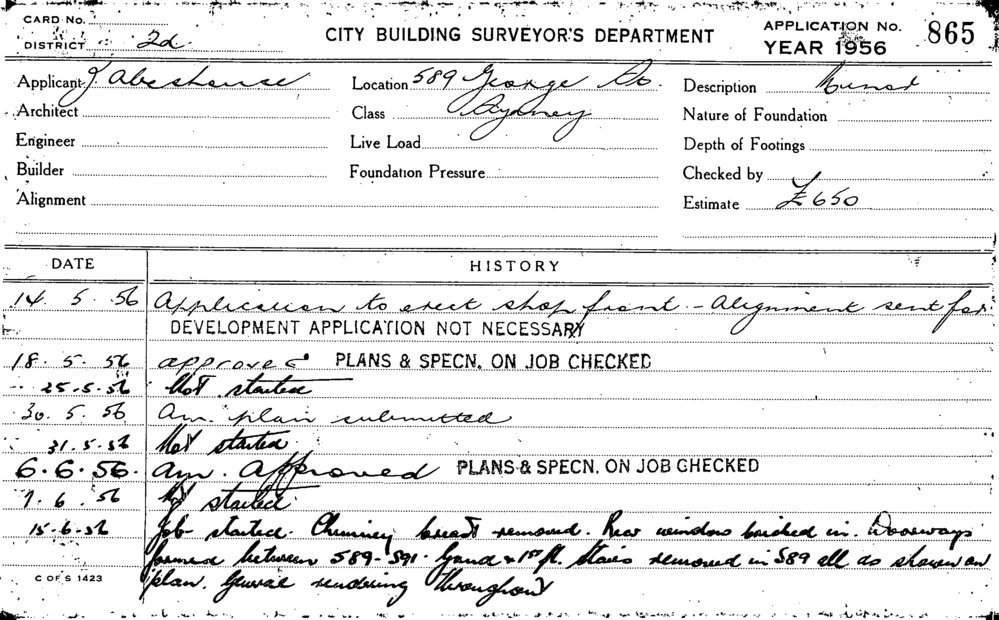 CARD No.
DISTRICT 2d.
CITY BUILDING SURVEYOR'S DEPARTMENT
APPLICATION No. 865
YEAR 1956
Applicant J Abeshouse
Location 589 George St.
Description Minor
Architect
Class Sydney
Nature of Foundation
Engineer
Live Load
Depth of Footings
Builder
Foundation Pressure
Checked by
Alignment
Estimate £650
DATE HISTORY
14. 5. 56 Application to erect shop front - Alignment sent for.
DEVELOPMENT APPLICATION NOT NECESSARY
18. 5. 56 approved PLANS & SPECN. ON JOB CHECKED
25.5.56 Not started
30. 5. 56 Am. plan submitted
31.5.56 Not started
6.6.56. am. Approved PLANS & SPECN. ON JOB CHECKED
7. 6. 56 Not started
15.6.56 Job started. Chimney breast removed. Rear windows bricked in. Doorways
formed between 589-591. Grnd & 1st fl. Stairs removed in 589 all as shown on
plan. General rendering throughout
C OF S 1423